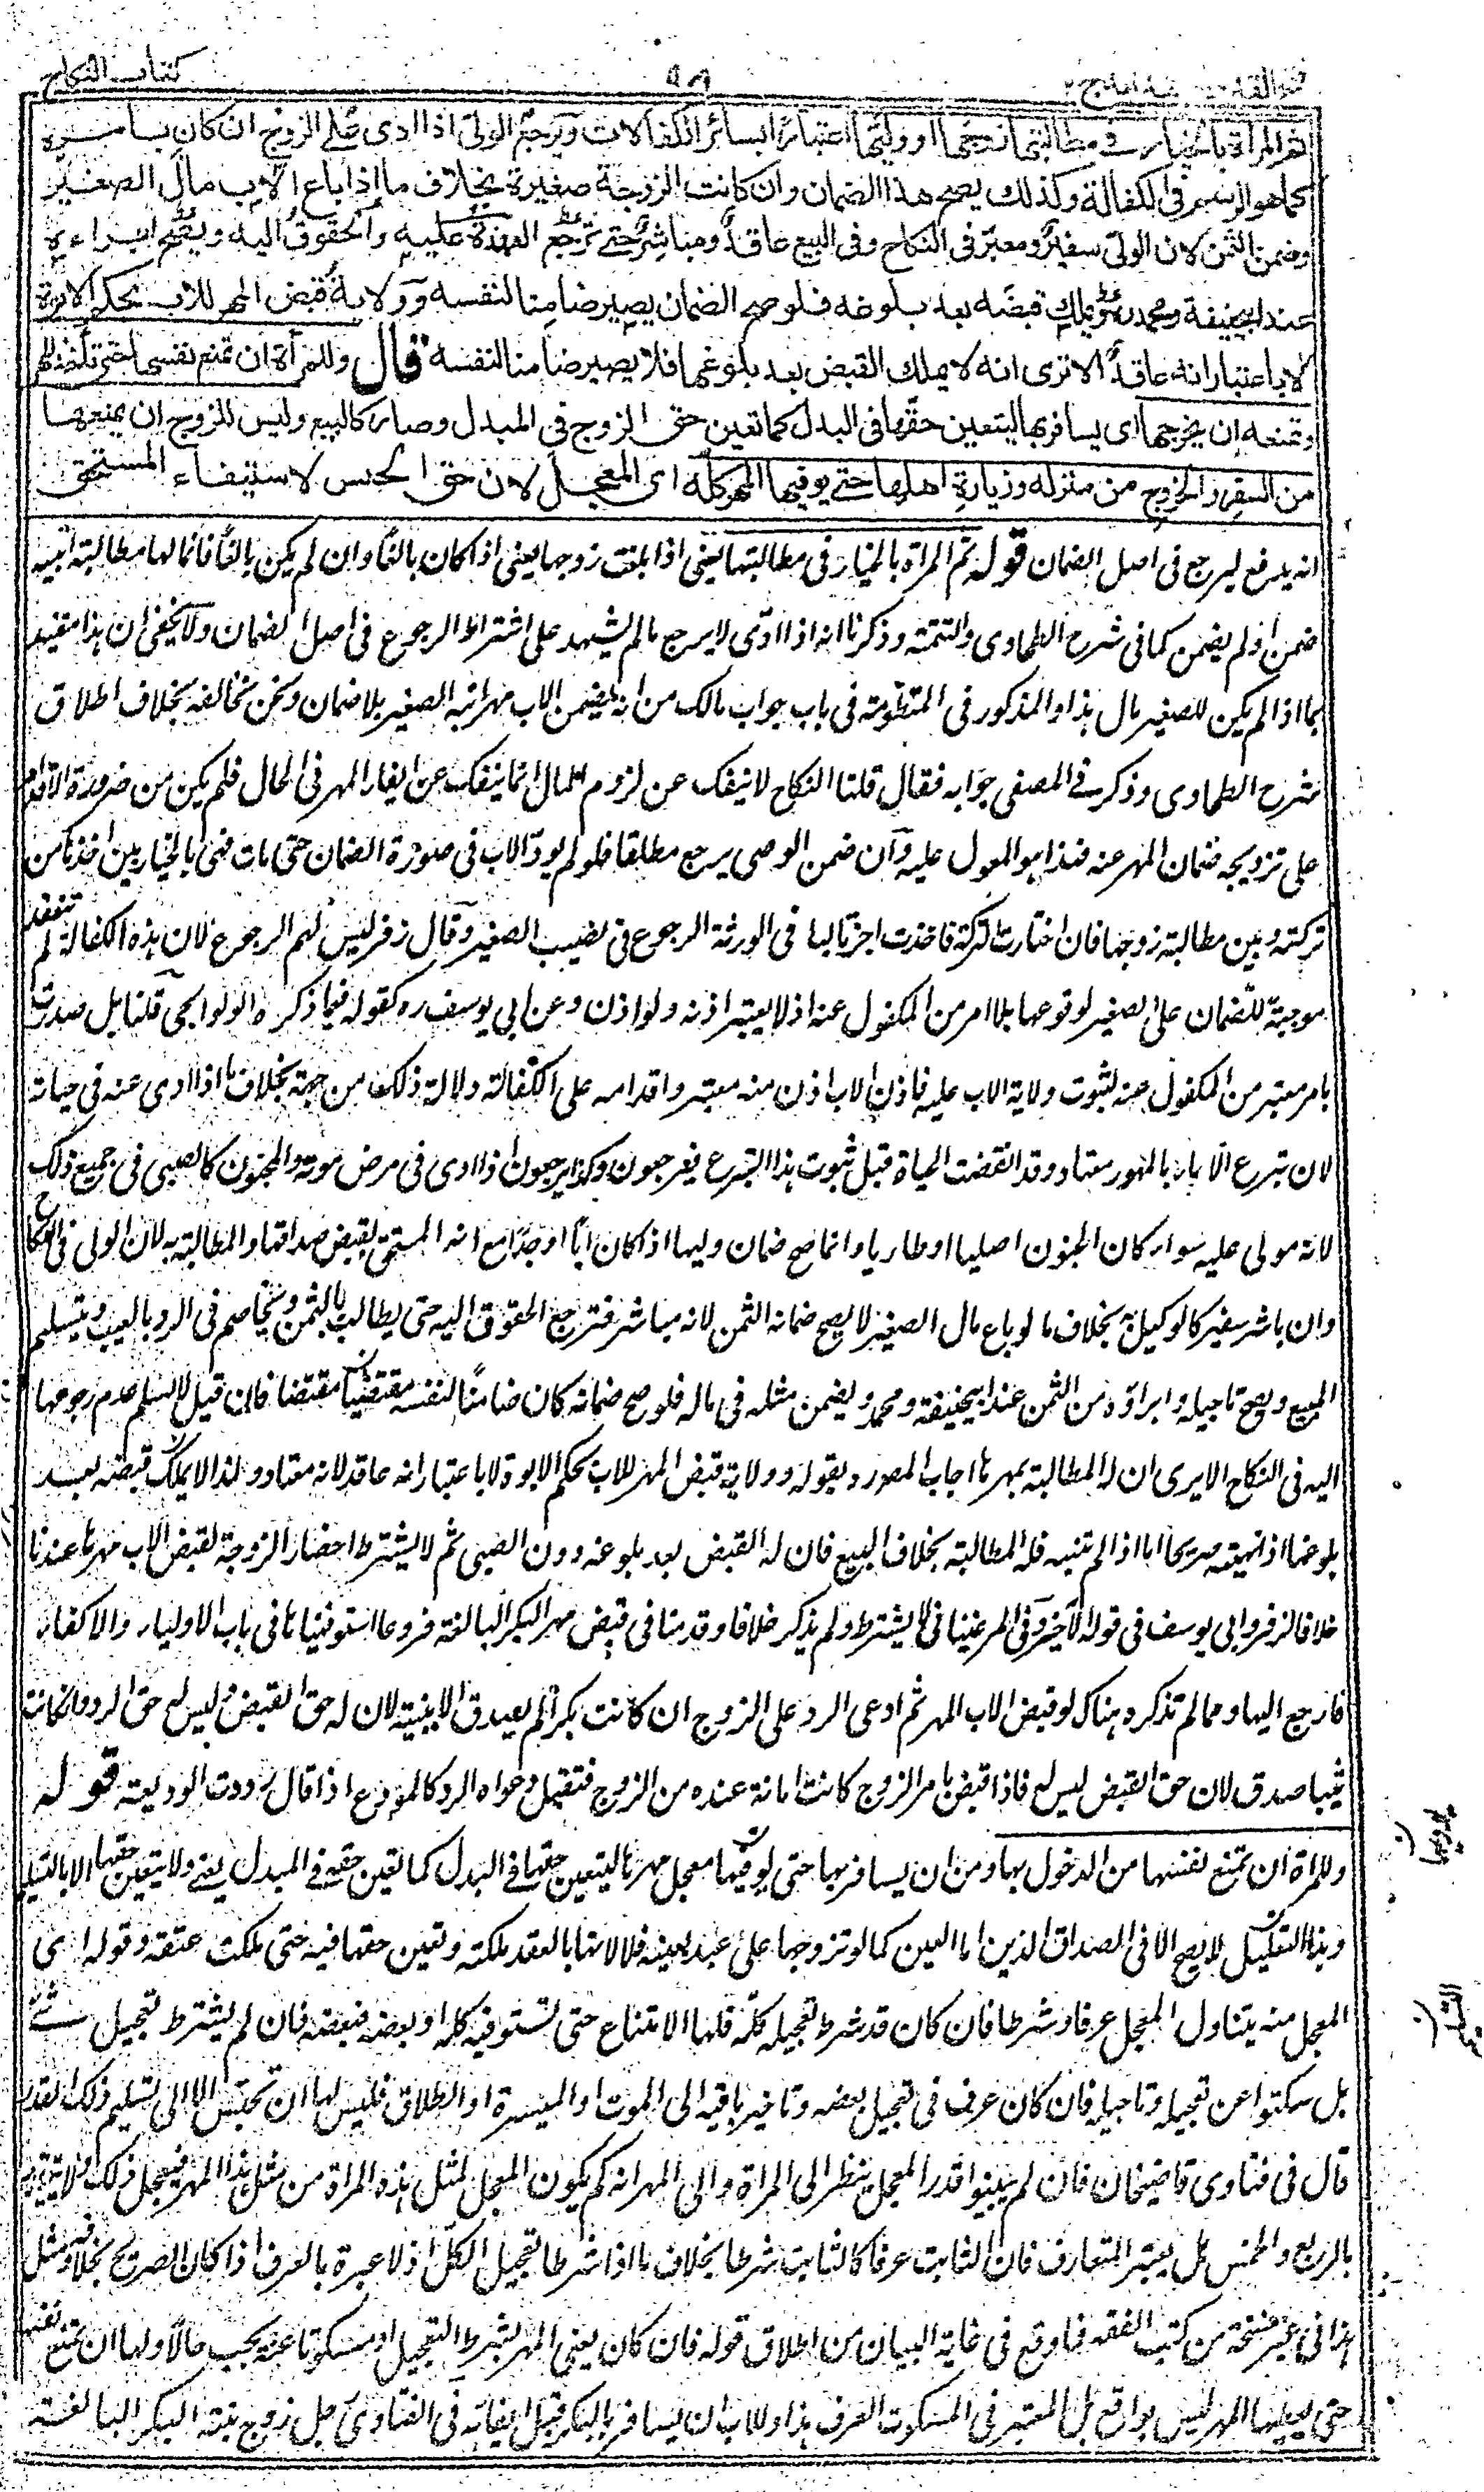 كتاب النكاح
ثم المرأة بالخيار في مطالبتها زوجها او وليها اعتبارا بسائر الكفالات ويرجع الولي اذا ادى على الزوج ان كان بامره
كما هو الرسم في الكفالة وكذلك يصح هذا الضمان وان كانت الزوجة صغيرة بخلاف ما اذا باع الاب مال الصغير
وضمن الثمن لان الولي سفير ومعبر في النكاح وفي البيع عاقد ومباشر حتى ترجع العهدة عليه والحقوق اليه ويصح ابراءه
عند ابي حنيفة ومحمد ويملك قبضه بعد بلوغه فلو صح الضمان يصير ضامنا لنفسه وولاية قبض المهر للاب بحكم الابوة
لا باعتبار انه عاقد الا ترى انه لا يملك القبض بعد بلوغها فلا يصير ضامنا لنفسه قال وللمرأة ان تمنع نفسها حتى تأخذ المهر
وتمنعه ان يخرجها اى يسافر بها ليتعين حقها في البدل كما تعين حق الزوج في المبدل وصار كالبيع وليس للزوج ان يمنعها
من السفر والخروج من منزله وزيارة اهلها حتى يوفيها المهر كله اى المعجل لان حق الحبس لاستيفاء المستحق
انه يدفع ليرجع في اصل الضمان قوله ثم المرأة بالخيار في مطالبتها يعني اذا بلغت زوجها يعني اذا كان بالغا وان لم يكن بالغا فانما لها مطالبة ابيه
ضمن او لم يضمن كما في شرح الطحاوى والتتمة وذكرنا انه اذا ادى لا يرجع ما لم يشهد على اشتراط الرجوع في اصل الضمان ولا يخفى ان هذا مقيد
بما اذا لم يكن للصغير مال هذا والمذكور في المنظومة في باب جواب مالك من انه يضمن الاب مهر ابنه الصغير بلا ضمان ونحن نخالفه بخلاف اطلاق
شرح الطحاوى وذكر في المصفى جوابه فقال قلنا النكاح لا ينفك عن لزوم المال انما ينفك عن ايفاء المهر في الحال فلم يكن من ضرورة الاقدام
على تزويجه ضمان المهر عنه فهذا هو المعول عليه وان ضمن الوصي يرجع مطلقا فلو لم يؤد الاب في صورة الضمان حتى مات فهي بالخيار بين اخذها من
تركته وبين مطالبة زوجها فان اختارت التركة فاخذت اجزنا لباقي الورثة الرجوع في نصيب الصغير وقال زفر ليس لهم الرجوع لان هذه الكفالة لم تنعقد
موجبة للضمان على الصغير لوقوعها بلا امر من المكفول عنه اذ لا يعتبر اذنه ولو اذن وعن ابي يوسف ره كقوله فيما ذكره الولوالجى قلنا بل صدرت
بامر معتبر من المكفول عنه لثبوت ولاية الاب عليه فاذن الاب اذن منه معتبر واقدامه على الكفالة دلالة ذلك من جهته بخلاف ما اذا ادى عنه في حياته
لان تبرع الآباء بالمهور معتاد وقد انقضت الحياة قبل ثبوت هذا التبرع فيرجعون وكذا يرجعون اذا ادى في مرض موته والمجنون كالصبي في جميع ذلك
لانه مولى عليه سواء كان الجنون اصليا او طاريا وانما صح ضمان وليها اذا كان ابا او جدا مع انه المستحق لقبض صداقها والمطالبة به لان الولي في النكاح
وان باشر سفير كالوكيل به بخلاف ما لو باع مال الصغير لا يصح ضمانه الثمن لانه مباشر فترجع الحقوق اليه حتى يطالب بالثمن ويخاصم في الرد بالعيب ويتسليم
المبيع ويصح تاجيله وابراؤه من الثمن عند ابيحنيفة ومحمد ويضمن مثله في ماله فلو صح ضمانه كان ضامنا لنفسه مقتضيا مقتضا فان قيل لا نسلم عدم رجوعها
اليه في النكاح الا يرى ان له المطالبة بمهرها اجاب المص ره بقوله وولاية قبض المهر للاب بحكم الابوة لا باعتبار انه عاقد لانه معتاد ولذا لا يملك قبضه بعد
بلوغها اذا نهته صريحا اما اذا لم تنهه فله المطالبة بخلاف البيع فان له القبض بعد بلوغه دون الصبي ثم لا يشترط احضار الزوجة لقبض الاب مهرها عندنا
خلافا لزفر وابي يوسف في قوله الآخر وفي المرغيناني لا يشترط ولم يذكر خلافا وقدمنا في قبض مهر البكر البالغة فروعا استوفيناها في باب الاولياء والاكفاء
فارجع اليها ومما لم تذكره هناك لو قبض الاب المهر ثم ادعى الرد على الزوج ان كانت بكرا لم يصدق الا ببينة لان له حق القبض وليس له حق الرد وان كانت
ثيبا صدق لان حق القبض ليس له فاذا قبض بامر الزوج كانت امانة عنده من الزوج فتقبل دعواه الرد كالمودع اذا قال رددت الوديعة قوله
وللمرأة ان تمنع نفسها من الدخول بها ومن ان يسافر بها حتى يوفيها معجل مهرها ليتعين حقها في البدل كما تعين حقه في المبدل يعني ولا يتعين حقها الا بالتسليم
وهذا التعليل لا يصح الا في الصداق الدين اما العين كما لو تزوجها على عبد بعينه فلا لانها بالعقد ملكته وتعين حقها فيه حتى ملكت عتقه وقوله اى
المعجل منه يتناول المعجل عرفا وشرطا فان كان قد شرط تعجيله كله فلها الامتناع حتى تستوفيه كله او بعضه فبعضه فان لم يشترط تعجيل شئ
بل سكتوا عن تعجيله وتاجيله فان كان عرف في تعجيل بعضه وتاخير باقيه الى الموت او الميسرة او الطلاق فليس لها ان تحتبس الا الى تسليم ذلك القدر
قال في فتاوى قاضيخان فان لم يبينوا قدر المعجل ينظر الى المرأة والى المهر انه كم يكون المعجل لمثل هذه المرأة من مثل هذا المهر فيعجل ذلك ولا يتقدر
بالربع والخمس بل يعتبر المتعارف فان الثابت عرفا كالثابت شرطا بخلاف ما اذا شرطا تعجيل الكل اذ لا عبرة بالعرف اذا كان الصريح بخلافه ومثل
هذا في غير نسخة من كتب الفقه فما وقع في غاية البيان من اطلاق قوله فان كان يعني المهر بشرط التعجيل او مسكوتا عنه يجب حالا ولها ان تمنع نفسها
حتى يعطيها المهر ليس بواقع بل المعتبر في المسكوت العرف هذا وللاب ان يسافر بالبكر قبل ايفائه في الفتاوى رجل زوج بنته البكر البالغة